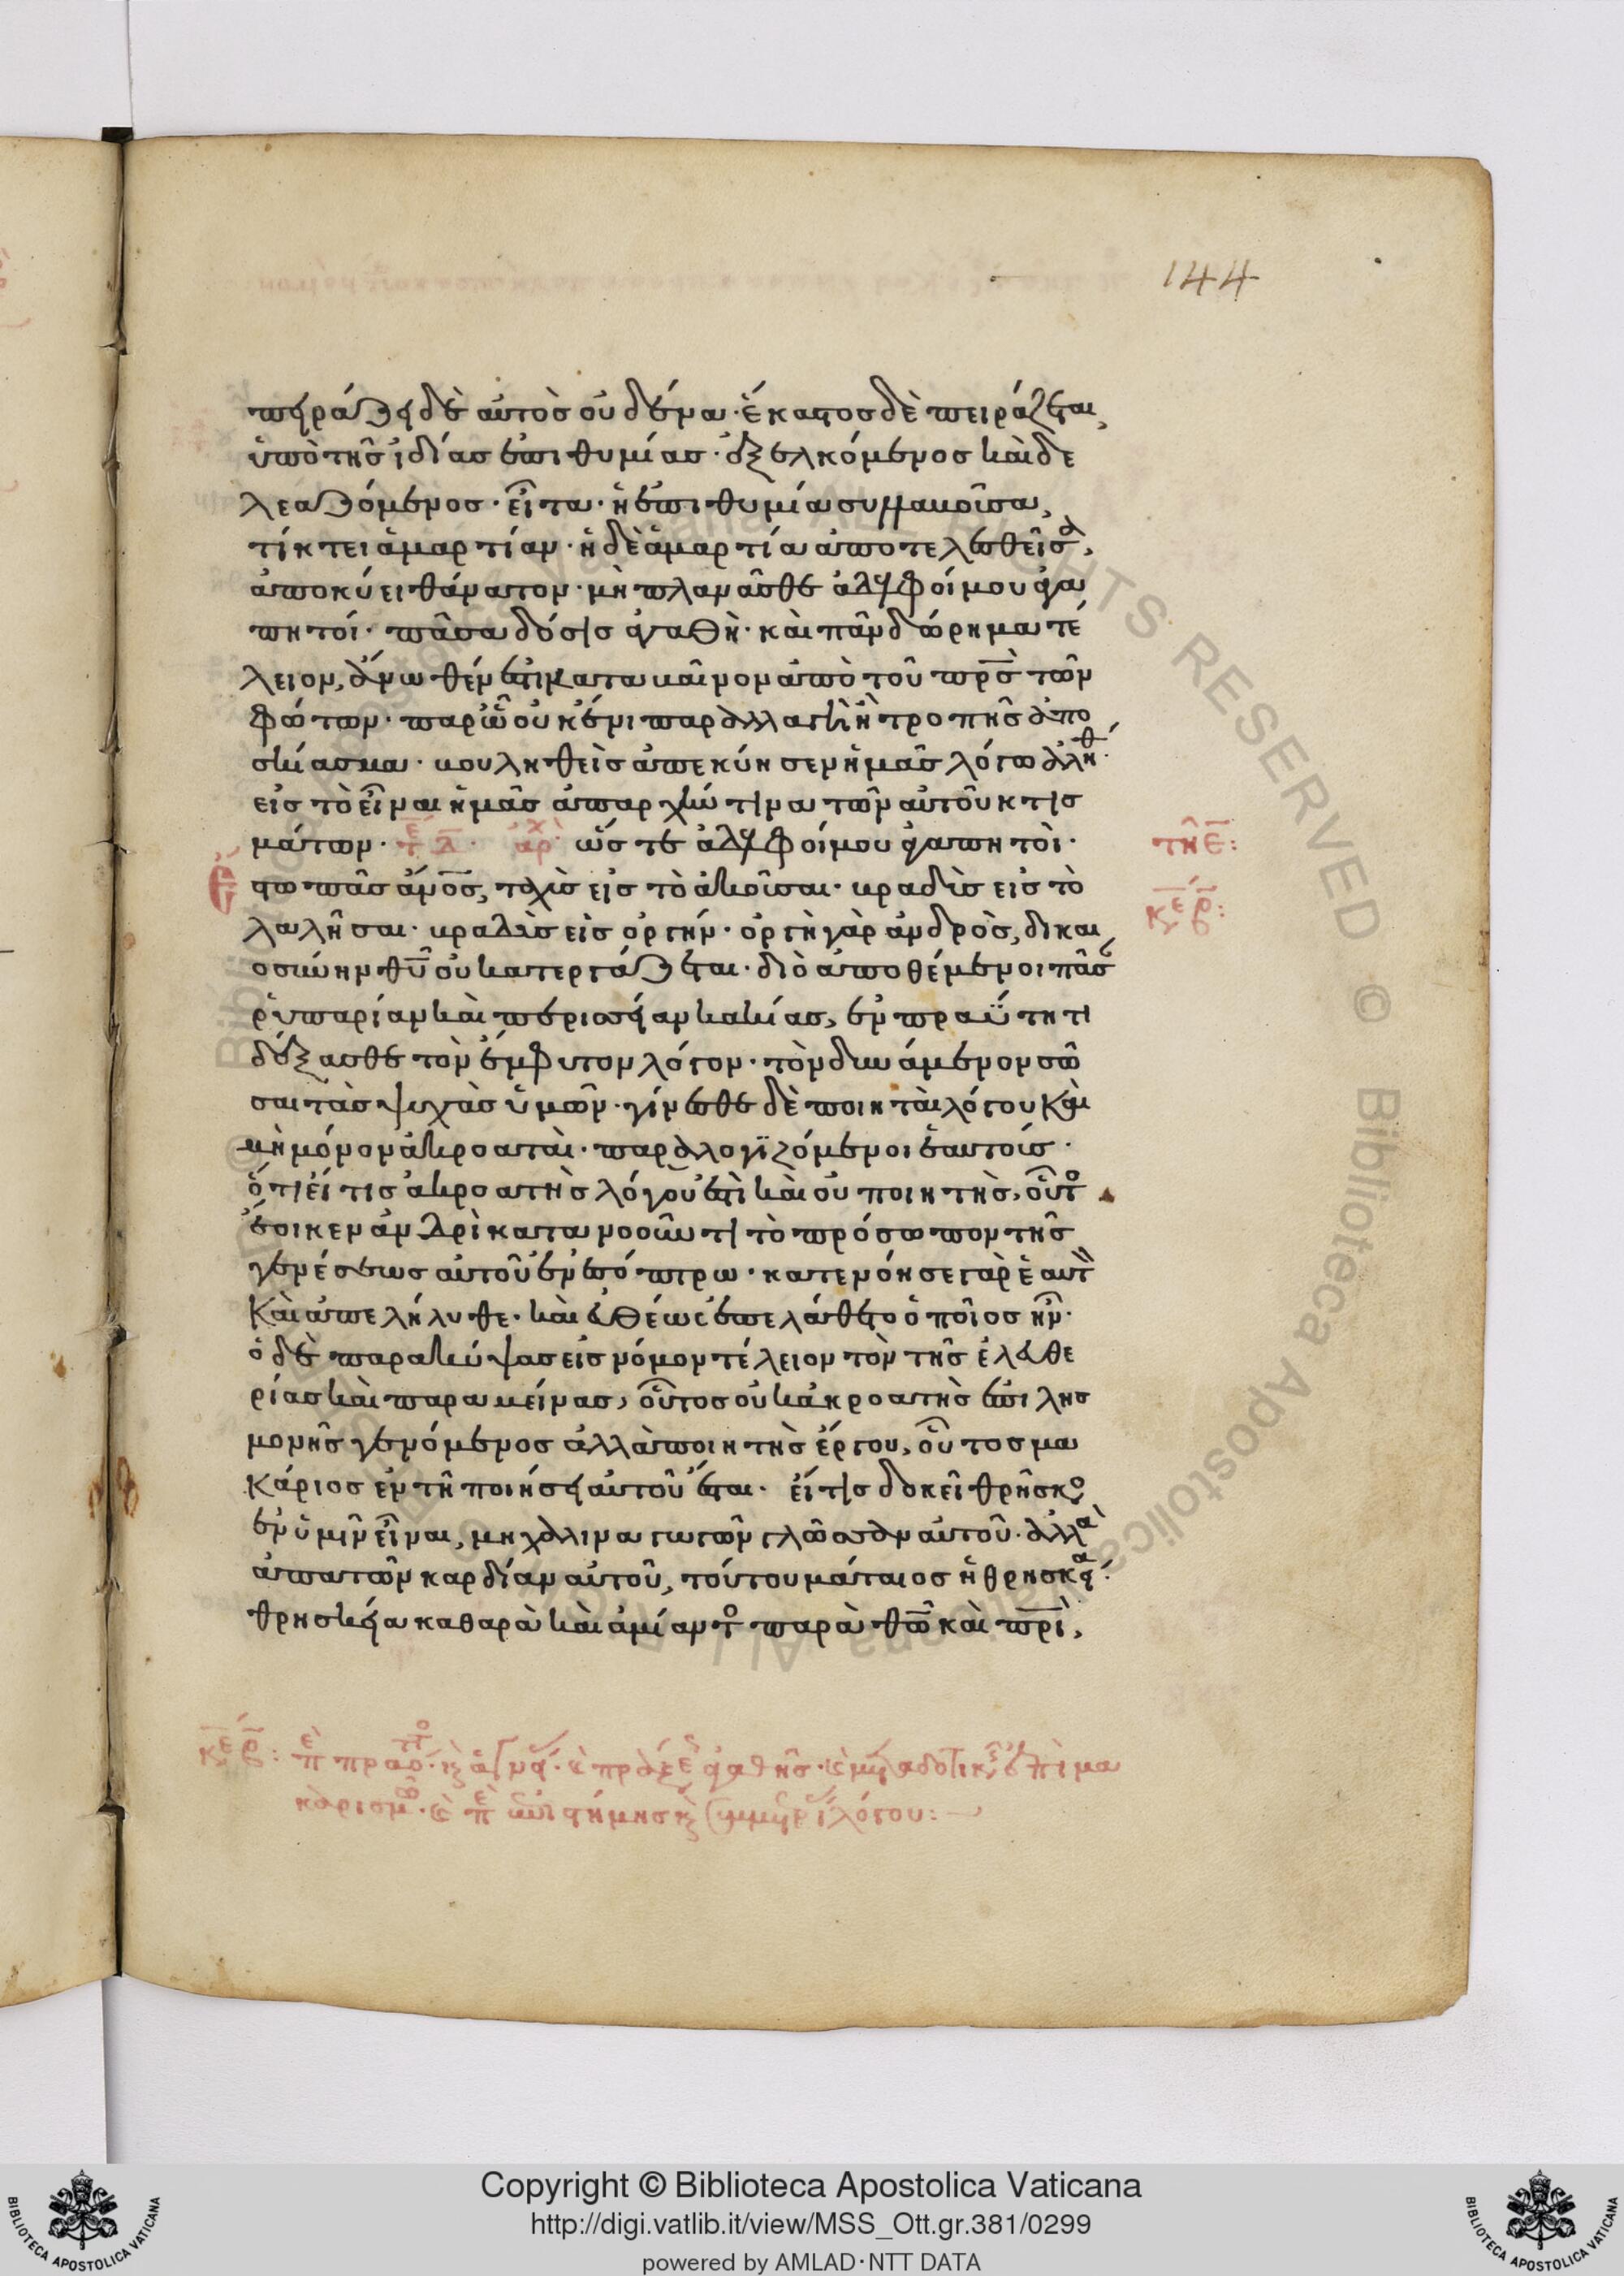 144
πειράζει δὲ αὐτὸς οὐδένα· ἕκαστος δὲ πειράζεται,
ὑπὸ τῆς ἰδίας ἐπιθυμίας· ἐξελκόμενος καὶ δε
λεαζόμενος· εἶτα· ἡ ἐπιθυμία συλλαβοῦσα,
τίκτει ἁμαρτίαν· ἡ δὲ ἁμαρτία ἀποτελεσθεῖσα,
ἀποκύει θάνατον· μὴ πλανᾶσθε ἀδελφοί μου ἀγα
πητοί· πᾶσα δόσις ἀγαθὴ· καὶ πᾶν δώρημα τέ
λειον, ἄνωθέν ἐστι καταβαῖνον ἀπὸ τοῦ πρς τῶν
φώτων· παρ ᾧ οὐκ ἔνι παραλλαγὴ ἢ τροπῆς ἀπο
σκίασμα· βουληθεὶς ἀπεκύησεν ἡμᾶς λόγω ἀληθ
εἰς τὸ εἶναι ἡμᾶς ἀπαρχήν τινα τῶν αὐτοῦ κτισ
μάτων· τελ αρχ ὥστε ἀδελφοί μου ἀγαπητοὶ·
ἔστω πᾶς ἀνος, ταχὺς εἰς τὸ ἀκοῦσαι· βραδὺς εἰς τὸ
τῆ ε:
λαλῆσαι· βραδὺς εἰς ὀργήν· ὀργὴ γὰρ ἀνδρὸς, δικαι
κε β:
οσύνην θυ οὐ κατεργάζεται· διὸ ἀποθέμενοι πᾶσ
ῥυπαρίαν καὶ περισσείαν κακίας, ἐν πραΰτητι
δέξασθε τὸν ἔμφυτον λόγον· τὸν δυνάμενον σῶ
σαι τὰς ψυχὰς ὑμῶν· γίνεσθε δὲ ποιηταὶ λόγου καὶ
μὴ μόνον ἀκροαταὶ· παραλογιζόμενοι ἑαυτούς·
ὅτι εἴ τις ἀκροατὴς λόγου ἐστὶ καὶ οὐ ποιητὴς, οὗτο
ἔοικεν ἀνδρὶ κατανοοῦντι τὸ πρόσωπον τῆς
γενέσεως αὐτοῦ ἐν ἐσόπτρω· κατενόησε γὰρ ἑαυτ
καὶ ἀπελήλυθε· καὶ εὐθέως ἐπελάθετο ὁποῖος ἦν·
ὁ δὲ παρακύψας εἰς νόμον τέλειον τὸν τῆς ἐλευθε
ρίας καὶ παραμείνας, οὗτος οὐκ ἀκροατὴς ἐπιλησ
μονῆς γενόμενος ἀλλὰ ποιητὴς ἔργου, οὗτος μα
κάριος ἐν τῆ ποιήσει αὐτοῦ ἔσται· εἴ τις δοκεῖ θρῆσκο
ἐν ὑμῖν εἶναι, μὴ χαλιναγωγῶν γλῶσσαν αὐτοῦ· ἀλλὰ
ἀπατῶν καρδίαν αὐτοῦ, τούτου μάταιος ἡ θρησκεία·
θρησκεία καθαρὰ καὶ ἀμίαντο παρὰ θω καὶ πρι,
Copyright © Biblioteca Apostolica Vaticana
http://digi.vatlib.it/view/MSS_Ott.gr.381/0299
powered by AMLAD·NTT DATA